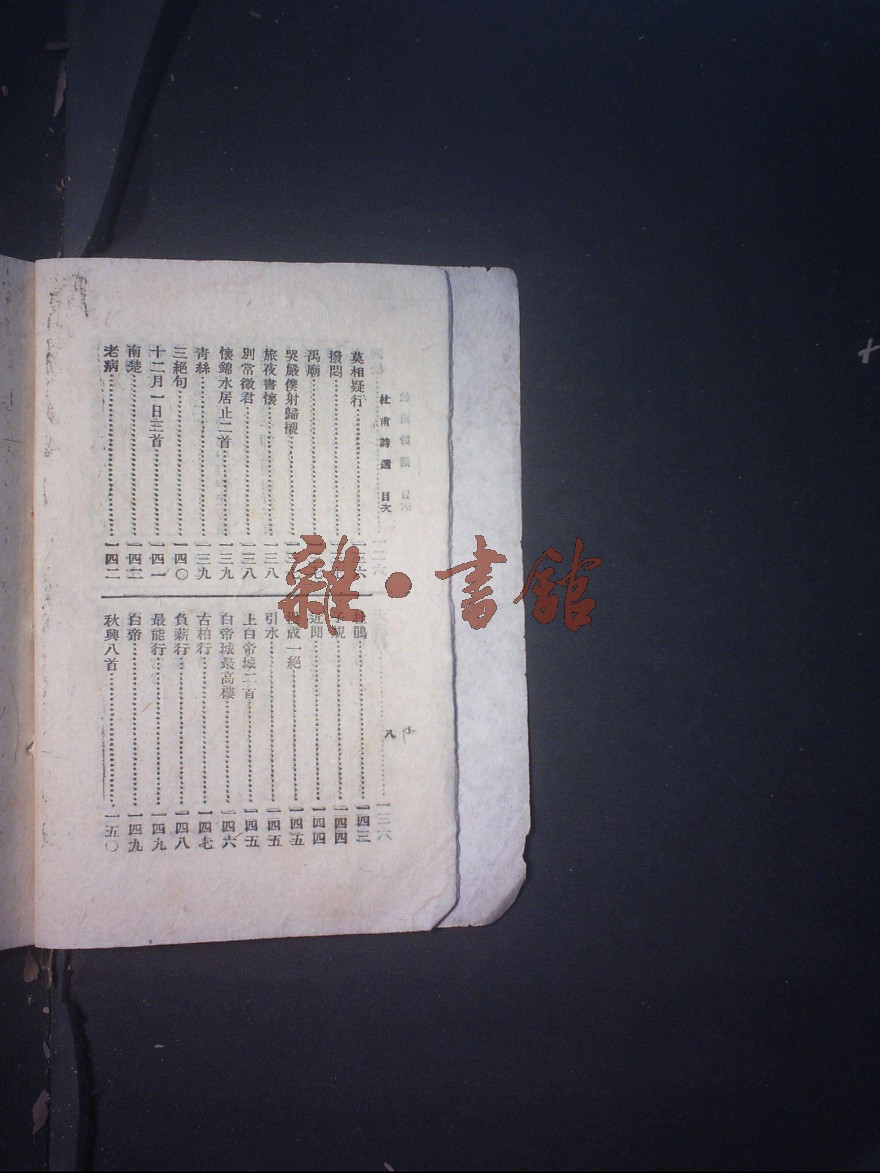 杜甫詩選 目次
八
莫相疑行……一三六
撥悶……
禹廟……
哭嚴僕射歸櫬……一三
旅夜書懷……一三八
別常徵君……一三八
懷錦水居止二首……一三九
青絲……一三九
三絕句……一四〇
十二月一日三首……一四一
南楚……一四二
老病……一四二
杜鵑……一四三
子規……一四四
近聞……一四四
成一絕……一四五
引水……一四五
上白帝城二首……一四五
白帝城最高樓……一四六
古柏行……一四七
負薪行……一四八
最能行……一四九
白帝……一四九
秋興八首……一五〇
雜·書館